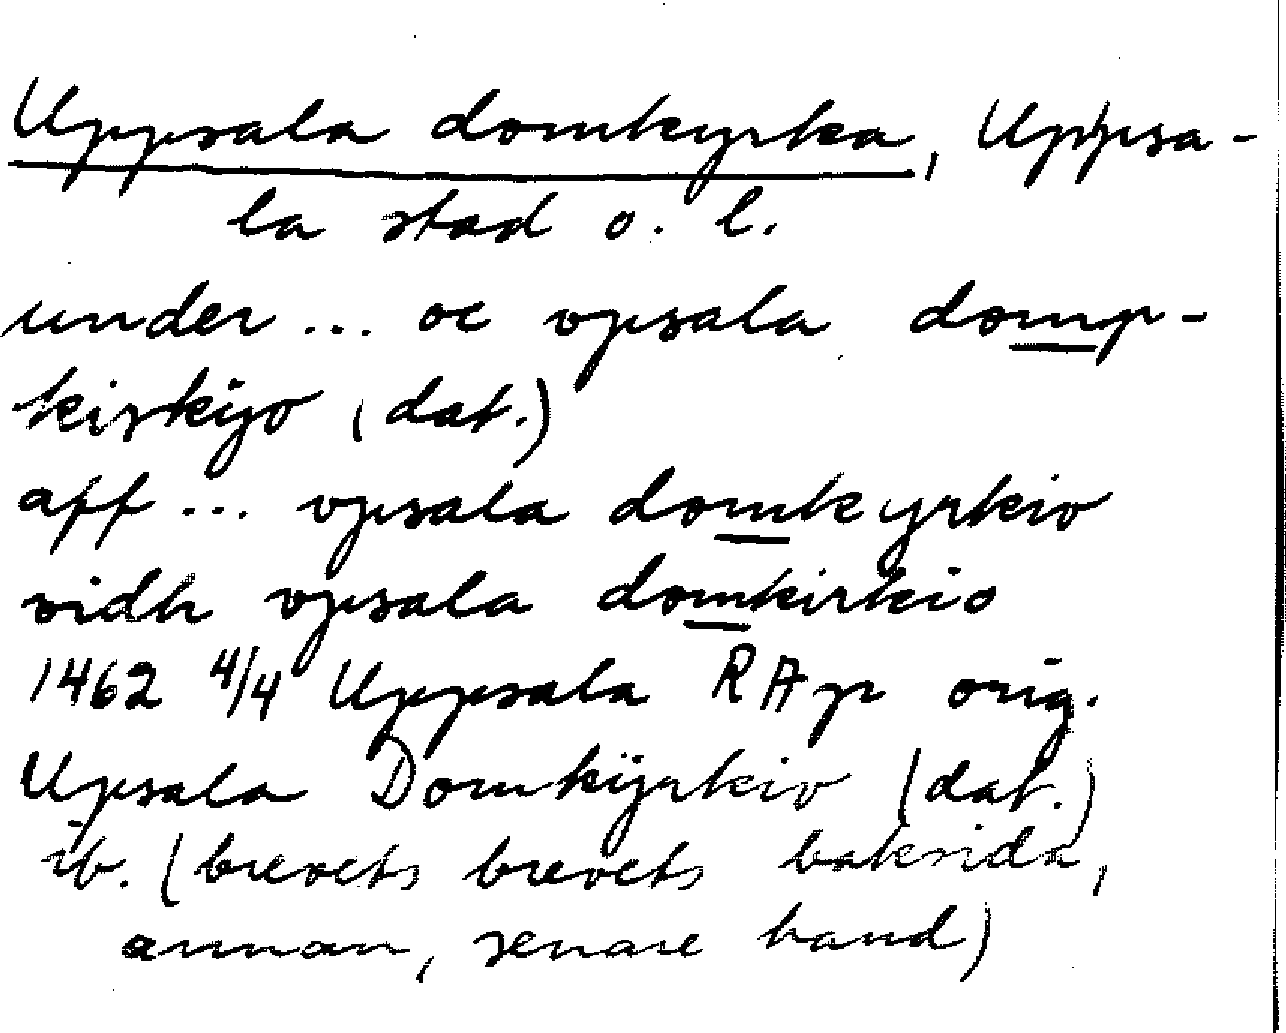 Uppsala domkyrka, Uppsa-
la stad o. l.
under... oc vpsala domp-
kirkijo (dat.)
aff... vpsala domkyrkio
vidh vpsala domkirkio
1462 4/4 Uppsala RAp orig.
Upsala Domkÿrkio (dat.)
ib. (brevets brevets baksida,
annan, senare hand)